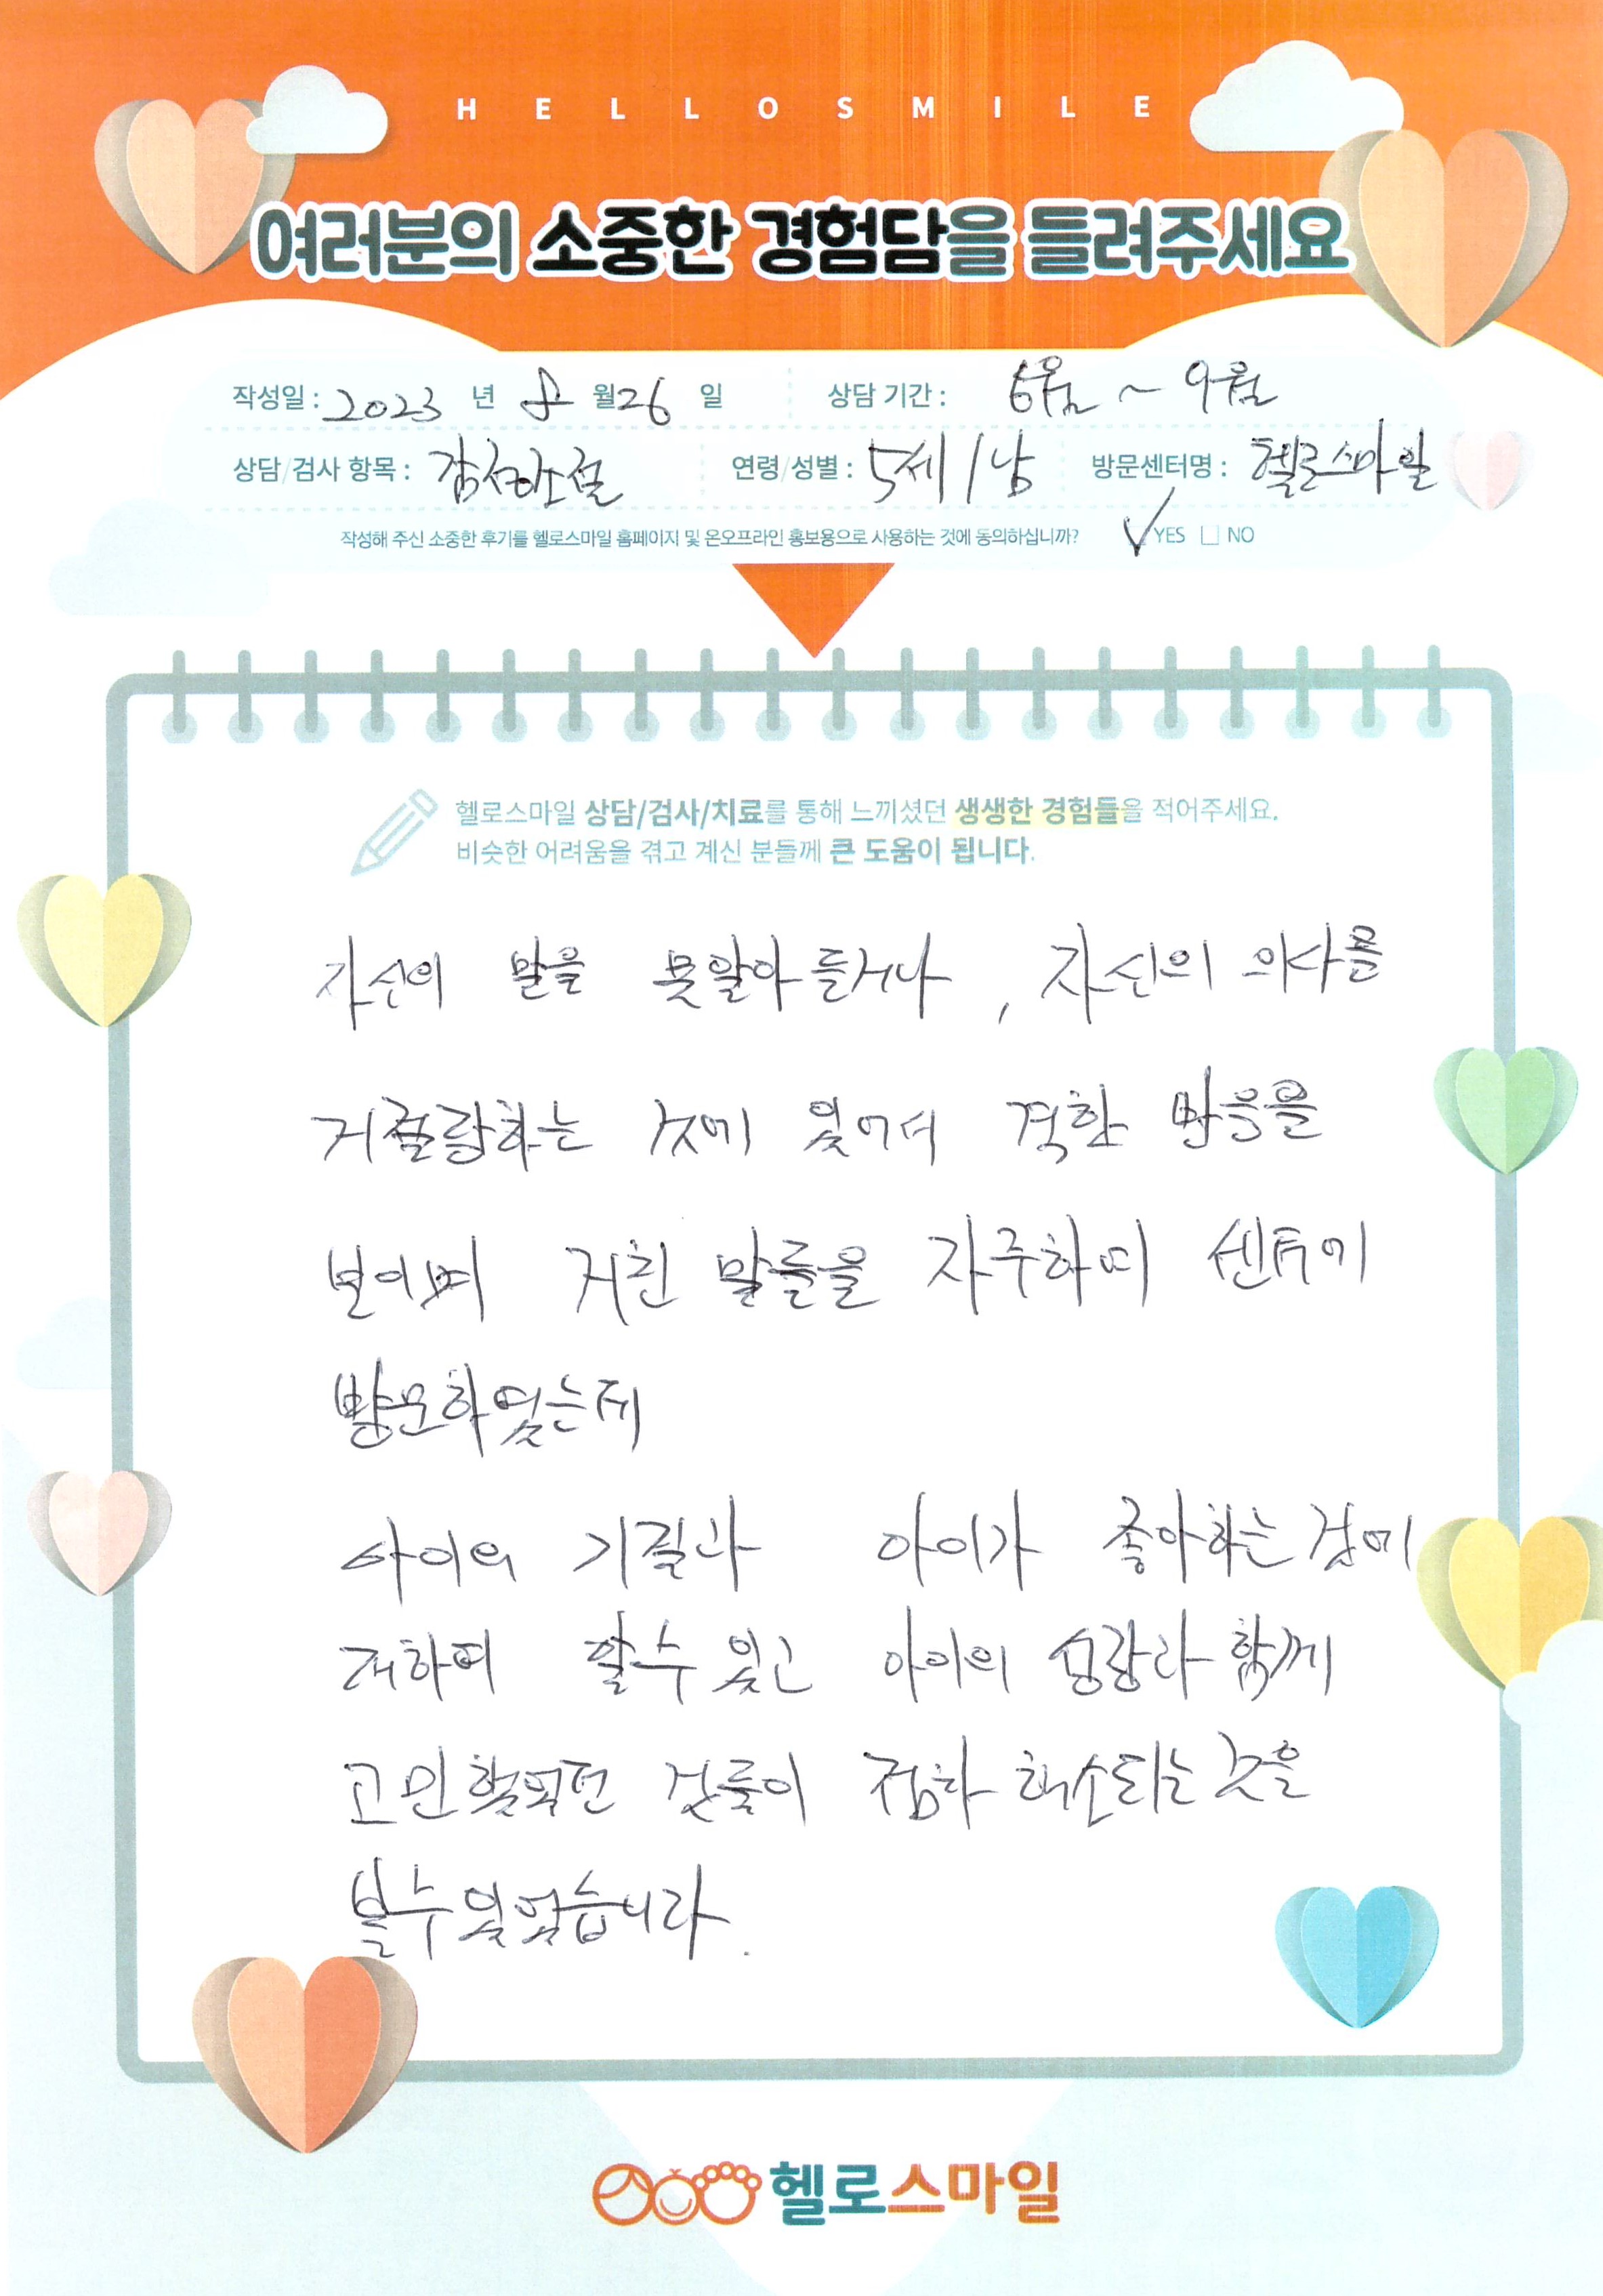 HELLOSMILE
여러분의 소중한 경험담을 들려주세요
작성일 : 2023 년 8 월 26 일 상담 기간 : 6월 ~ 9월
상담/검사 항목 : 감정조절 연령/성별 : 5세 / 남 방문센터명 : 헬로스마일
작성해 주신 소중한 후기를 헬로스마일 홈페이지 및 온오프라인 홍보용으로 사용하는 것에 동의하십니까? ✓ YES □ NO
헬로스마일 상담/검사/치료를 통해 느끼셨던 생생한 경험들을 적어주세요.
비슷한 어려움을 겪고 계신 분들께 큰 도움이 됩니다.
자신의 말을 못알아 듣거나, 자신의 의사를
거절당하는 것에 있어서 격한 반응을
보이며 거친 말들을 자주하며 센터에
방문하였는데
아이의 기질과 아이가 좋아하는 것에
대하여 알수 있고 아이의 성장과 함께
고민 했었던 것들이 점차 해소되는 것을
볼수 있었습니다.
헬로스마일